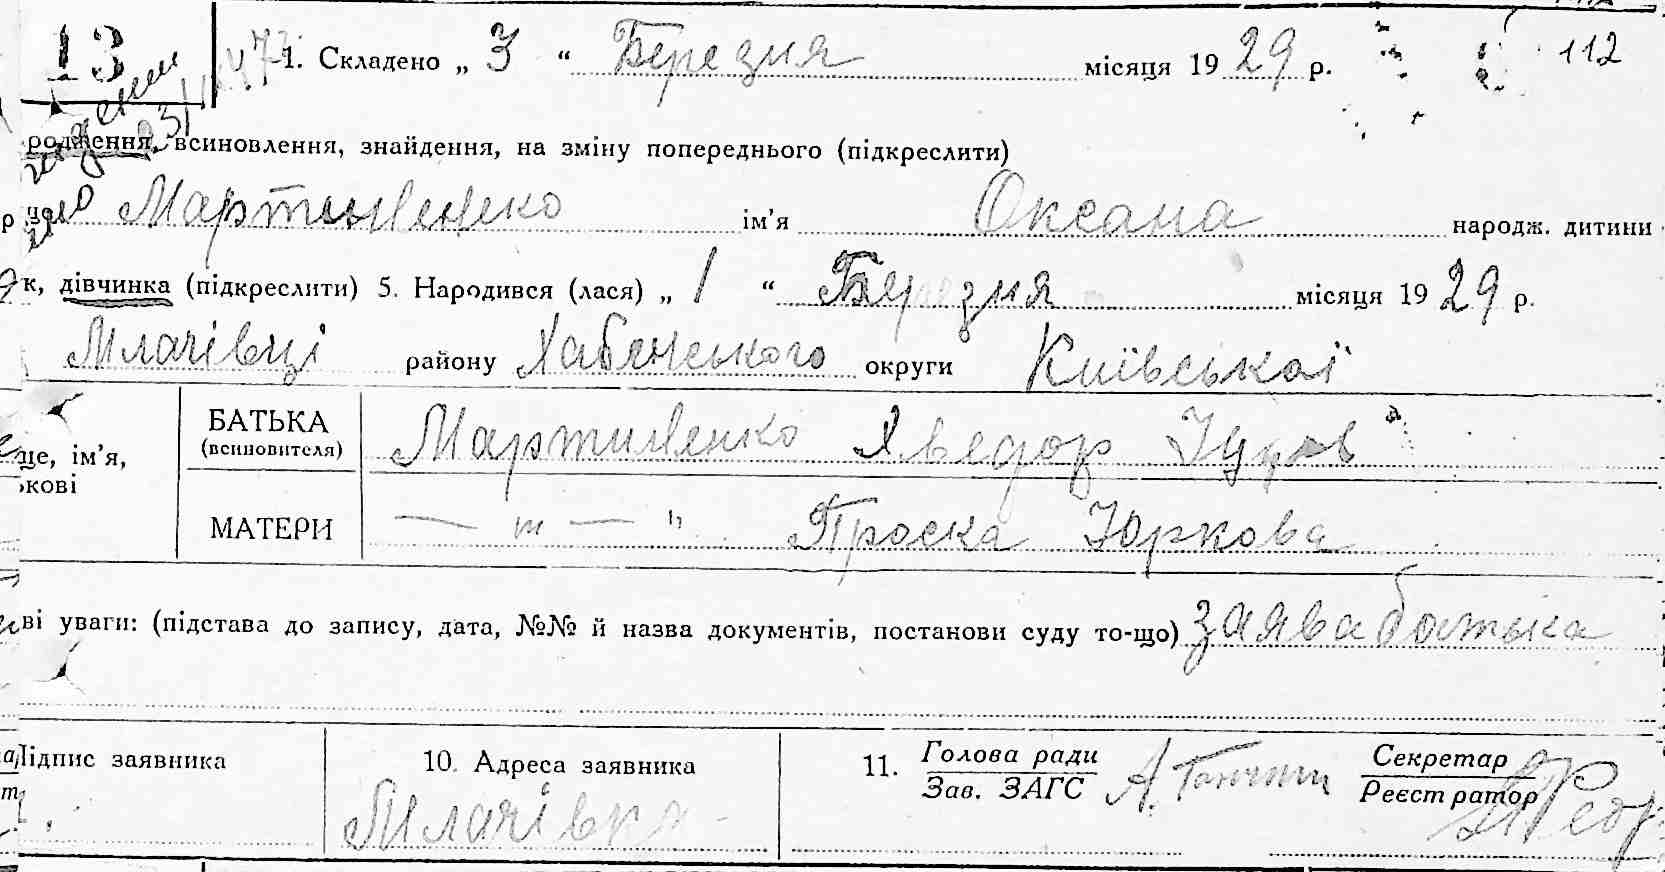 13
1. Складено „ 3 “ Березня місяця 19 29 р. 112
родження, всиновлення, знайдення, на зміну попереднього (підкреслити)
Мартиненко ім’я Оксана народж. дитини
к, дівчинка (підкреслити) 5. Народився (лася) „ 1 “ Березня місяця 19 29 р.
Млачівці району Хабенського округи Київської
це, ім’я,
кові
БАТЬКА
(всиновителя)
Мартиненко Хведор
МАТЕРИ
— „ — " Проска Юркова
ві уваги: (підстава до запису, дата, №№ й назва документів, постанови суду то-що) заява батька
Підпис заявника
10. Адреса заявника
Млачівка
11. Голова ради
Зав. ЗАГС
Секретар
Реєстратор